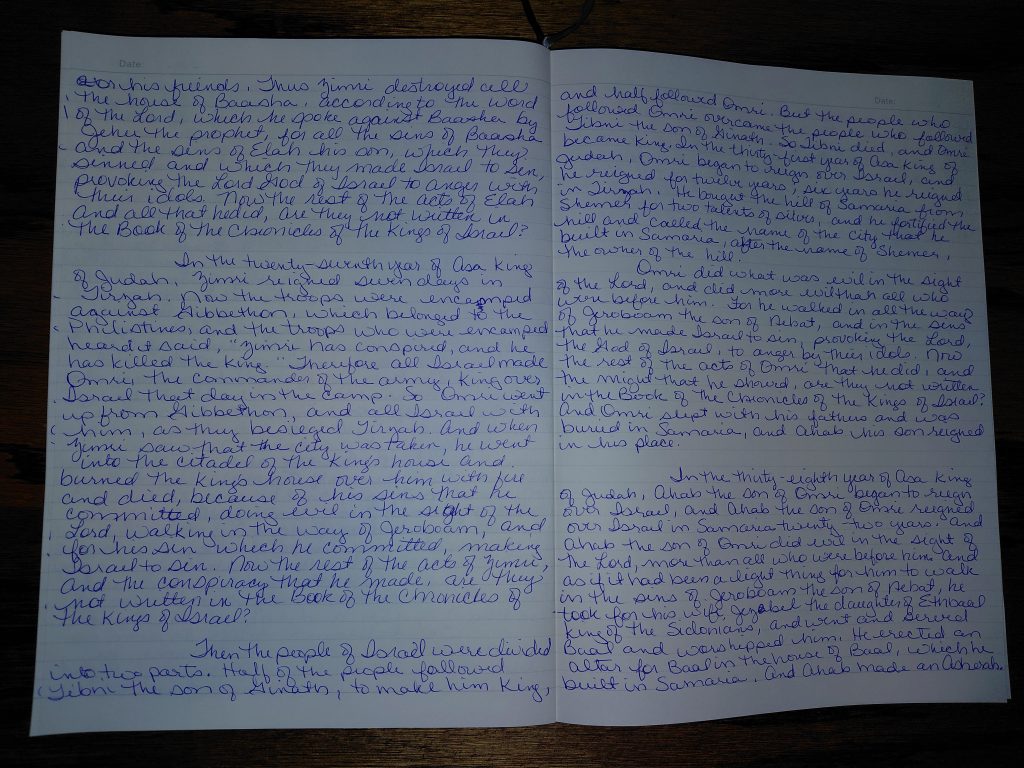 Date
or his friends. Thus Zimri destroyed all
the house of Baasha, according to the word
of the Lord, which he spoke against Baasha by
Jehu the prophet, for all the sins of Baasha
and the sins of Elah his son, which they
sinned and which they made Israel to sin,
provoking the Lord God of Israel to anger with
their idols. Now the rest of the acts of Elah
and all that he did, are they not written in
the Book of the Chronicles of the Kings of Israel?
In the twenty-seventh year of Asa king
of Judah, Zimri reigned seven days in
Tirzah. Now the troops were encamped
against Gibbethon, which belonged to the
Philistines, and the troops who were encamped
heard it said, "Zimri has conspired, and he
has killed the king." Therefore all Israel made
Omri, the commander of the army, king over
Israel that day in the camp. So Omri went
up from Gibbethon, and all Israel with
him, as they besieged Tirzah. And when
Zimri saw that the city was taken, he went
into the citadel of the king's house and
burned the king's house over him with fire
and died, because of his sins that he
committed, doing evil in the sight of the
Lord, walking in the way of Jeroboam, and
for his sin which he committed, making
Israel to sin. Now the rest of the acts of Zimri,
and the conspiracy that he made, are they
not written in the Book of the Chronicles of
the Kings of Israel?
Then the people of Israel were divided
into two parts. Half of the people followed
Tibni the son of Ginath, to make him king,
Date:
and half followed Omri. But the people who
followed Omri overcame the people who followed
Tibni the son of Ginath. So Tibni died, and Omri
became king. In the thirty-first year of Asa king of
Judah, Omri began to reign over Israel, and
he reigned for twelve years; six years he reigned
in Tirzah. He bought the hill of Samaria from
Shemer for two talents of silver, and he fortified the
hill and called the name of the city that he
built in Samaria, after the name of Shemer,
the owner of the hill.
Omri did what was evil in the sight
of the Lord, and did more evil than all who
were before him. For he walked in all the way
of Jeroboam the son of Nebat, and in the sins
that he made Israel to sin, provoking the Lord,
the God of Israel, to anger by their idols. Now
the rest of the acts of Omri that he did, and
the might that he showed, are they not written
in the Book of the Chronicles of the Kings of Israel?
And Omri slept with his fathers and was
buried in Samaria, and Ahab his son reigned
in his place.
In the thirty-eighth year of Asa king
of Judah, Ahab the son of Omri began to reign
over Israel, and Ahab the son of Omri reigned
over Israel in Samaria twenty-two years. And
Ahab the son of Omri did evil in the sight of
the Lord, more than all who were before him. And
as if it had been a light thing for him to walk
in the sins of Jeroboam the son of Nebat, he
took for his wife Jezebel the daughter of Ethbaal
king of the Sidonians, and went and served
Baal and worshipped him. He erected an
altar for Baal in the house of Baal, which he
built in Samaria. And Ahab made an Asherah.